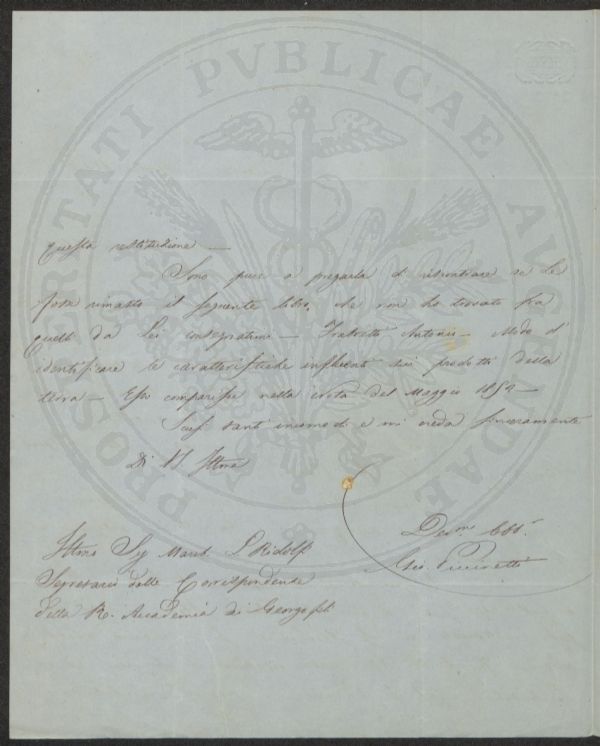 PROSPERITATI PVBLICAE AVGENDAE
questa restituzione —
Sono pure a pregarla di riscontrare se Le
fosse rimasto il seguente libro, che non ho trovato fra
quelli da Lei consegnatimi — Antonio — Modo d'
identificare le caratteristiche influenti sui prodotti della
terra — Esso comparisce nella nota del Maggio 1852 —
Scusi tanti incomodi e mi creda sinceramente
Di V. S. Illma
Devmo Obbo
Gio
Illmo Sig March. L. Ridolfi
Segretario delle Corrispondenze
della R. Accademia dei Georgofili